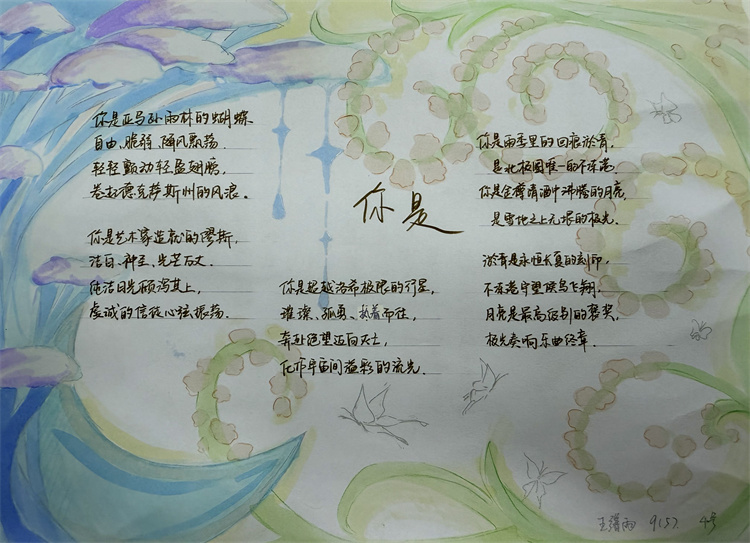 你是
你是亚马孙雨林的蝴蝶
自由、脆弱、随风飘荡.
轻轻颤动轻盈翅膀,
卷起德克萨斯州的风浪.
你是艺术家造就的缪斯,
洁白、神圣、光芒万丈.
纯洁日光倾泻其上,
虔诚的信徒心弦振荡.
你是超越洛希极限的行星,
璀璨、孤勇、执着而往,
奔赴绝望迈向灭亡,
化作宇宙间溢彩的流光.
你是雨季里的回痕淤青,
是北极圈唯一的不冻港.
你是金樽清酒中沸腾的月亮,
是雪地之上无垠的极光.
淤青是永恒长夏的刻印,
不冻港守望候鸟飞翔.
月亮是最高级别的褒奖,
极光奏响乐曲终章.
雨 9(5)7 4号